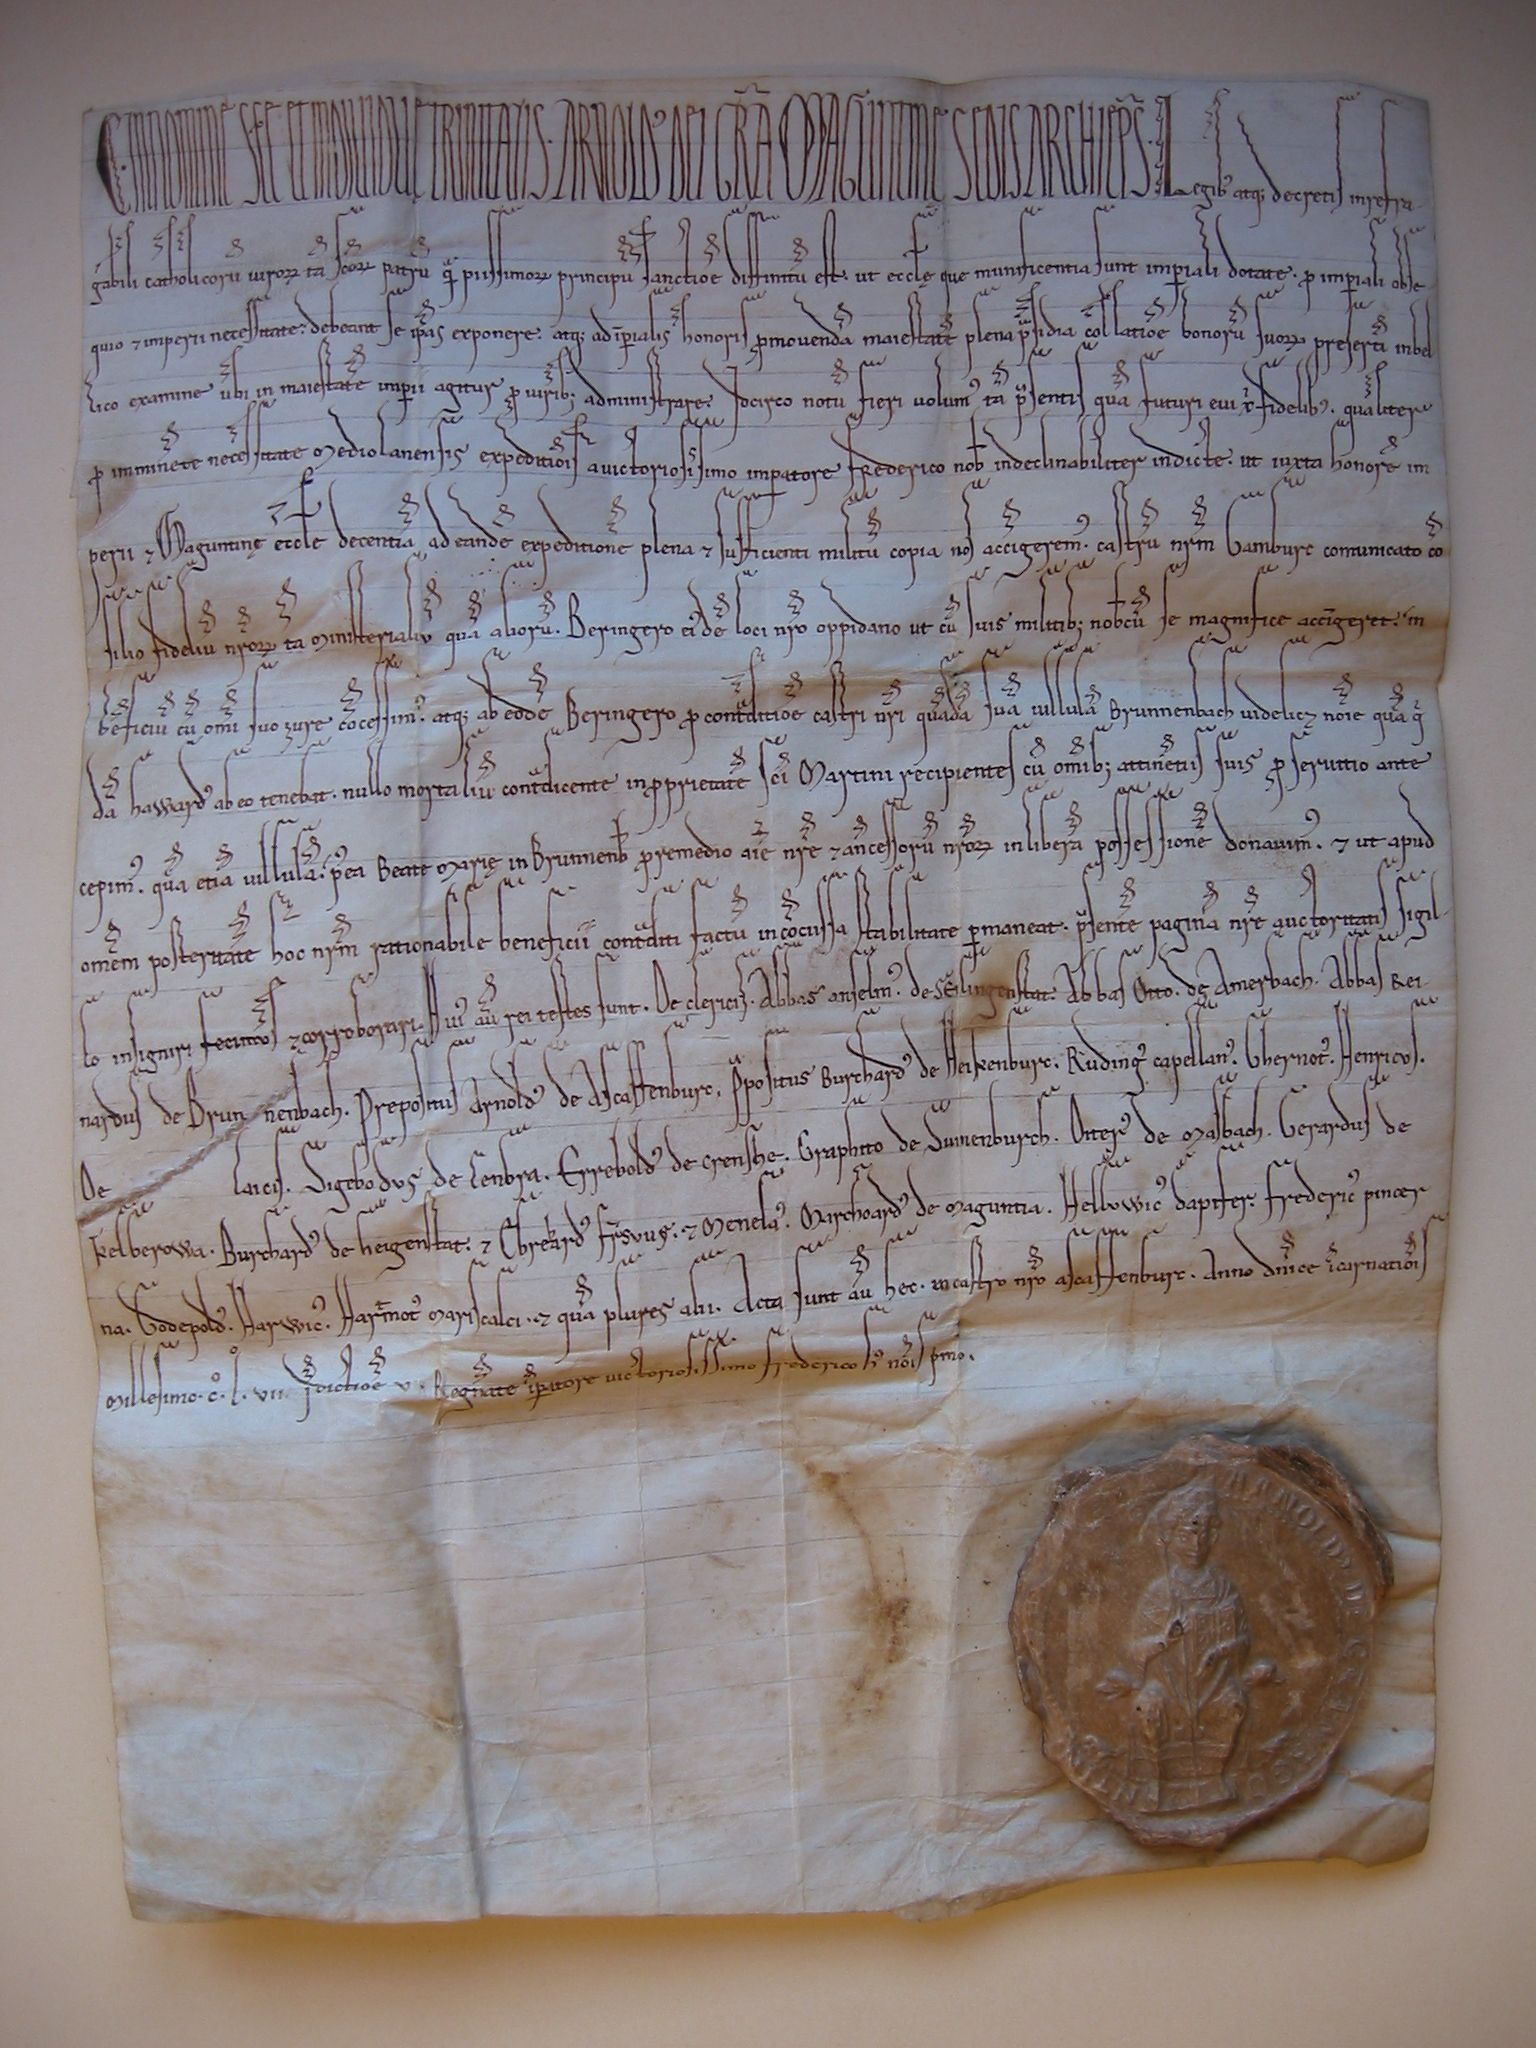 C. IN NOMINE SCE ET INDIVIDUE TRINITATIS. ARNOLD' DEI GRA MAGUNTINE SEDIS ARCHIEPS. Legib' atq; decretis infra
gabili catholicorū virorꝝ tā scōrꝝ patrū q̄ piissimorꝝ principū sanctiōe diffinitū est. ut eccl̄e que munificentia sunt imꝑiali dotate. ꝓ imꝑiali obse
quio ⁊ imperii necessitate. debeant se ip̄as exponere. atq; ad īꝑialis honoris ꝓmovendā maiestatē plena p̄sidia collatiōe bonorū suorꝝ presertī in bel
lico examine ubi in maiestatē imꝑii agitur ꝓ virib; administrare. Idcirco notū fieri volum' tā p̄sentis quā futuri evi xp̄i fidelib'. qualiter
ꝓ imminēte necessitate Mediolanensis expeditiōis a victoriosissimo imꝑatore Frederico nob̄ indeclinabiliter indicte. ut iuxta honorē im
perii ⁊ Maguntinę eccl̄e decentiā ad eandē expeditionē plena ⁊ sufficienti militū copia nos accigerem'. castrū nr̄m Gamburc comunicato cō
silio fideliū nr̄orꝝ tā ministerialiū quā aliorū. Beringero ei'dē loci nr̄o oppidano ut cū suis militib; nob̄cū se magnifice accīgeret. in
beficiū cū omī suo iure cōcessim'. atq; ab eodē Beringero ꝓ cont̄ditiōe castri nr̄i quādā suā villulā Brunnenbach videlicꝫ noīe quā q̄
dā Haward' ab eo tenebat. nullo mortaliū cont̄dicente in ꝓprietatē sc̄i Martini recipientes cū omib; attinētiis suis ꝓ servitio ante
cepim'. quā etiā villulā. p̄ea Beate Marię in Brunnenb̄ ꝓ remedio aīe nr̄e ⁊ ancessorū nr̄orꝝ in liberā possessionē donavim'. ⁊ ut apud
omēm posteritatē hoc nr̄m rationabile beneficiū cont̄diti factū incōcussa stabilitate ꝑmaneat. p̄sentē paginā nr̄e auctoritatis sigil-
lo insigniri fecimus ⁊ corroborari. Hui' aū rei testes sunt. De clericis. Abbas anselm'. de Selingenstat. Abbas Otto. de Amerbach. Abbas Rei-
nardus de Brun nenbach. Prepositus Arnold' de Ascaffenburc. P̄positus Burchard' de Heikenburc. Ruding' capellan'. Gbernot'. Henricus.
De laicis. Sigebodus de Cenbra. Erkebold' de crenshe. Craphtto de Suinenburch. Otter' de Masbach. Gerardus de
Kelberowa. Burchard' de heigenstat. ⁊ Ebrehard' fr̄ suus. ⁊ Menela'. Marchoard' de Maguntia. Helluwic' dapifer. Frederic' pincer
na. Godepold'. Harwic'. Hartmot' Mariscalci. ⁊ quā plures alii. Acta sunt aū hec. in castro nr̄o ascaffenburc. Anno dn̄ice īcarnatiōis
Millesimo. c̊. l̊. vii. Īdictiōe v. Regnāte īꝑatore victoriosissimo frederico h' nōis pmo.
ARNOLD' DEI GRA